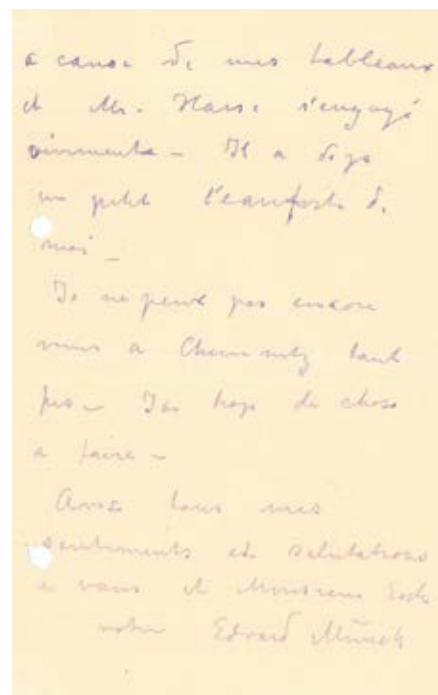 a cause de mes tableaux
et Mr. Hasse s'engagé
vivmente – Il a deja
un petit l'eauforte de
moi –
Je ne peux pas encore
venir a Chemnitz tant
pis – J'ai trop de chose
a faire –
Avec tous mes
sentiments et salutations
a vous et Monsieur
votre Edvard Munch